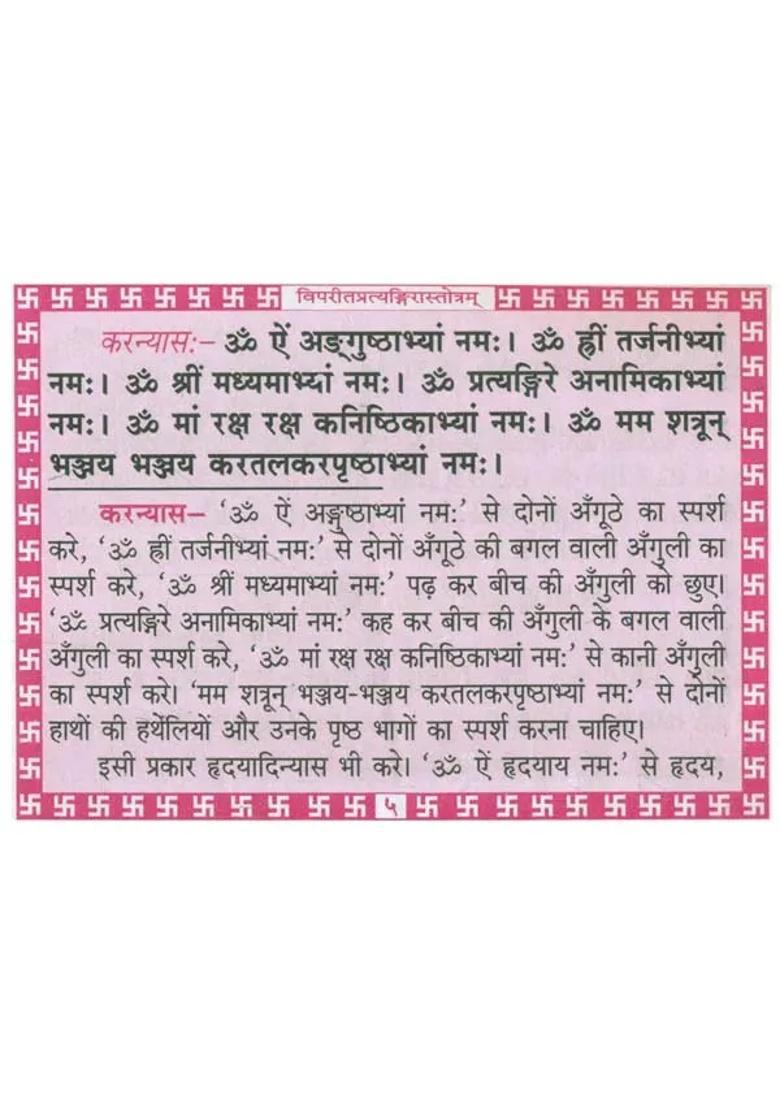 विपरीतप्रत्यङ्गिरास्तोत्रम्
करन्यास:– ॐ ऐं अङ्गुष्ठाभ्यां नमः। ॐ ह्रीं तर्जनीभ्यां
नमः। ॐ श्रीं मध्यमाभ्यां नमः। ॐ प्रत्यङ्गिरे अनामिकाभ्यां
नमः। ॐ मां रक्ष रक्ष कनिष्ठिकाभ्यां नमः। ॐ मम शत्रून्
भञ्जय भञ्जय करतलकरपृष्ठाभ्यां नमः।
करन्यास– ‘ॐ ऐं अङ्गुष्ठाभ्यां नमः’ से दोनों अँगूठे का स्पर्श
करे, ‘ॐ ह्रीं तर्जनीभ्यां नमः’ से दोनों अँगूठे की बगल वाली अँगुली का
स्पर्श करे, ‘ॐ श्रीं मध्यमाभ्यां नमः’ पढ़ कर बीच की अँगुली को छुए।
‘ॐ प्रत्यङ्गिरे अनामिकाभ्यां नमः’ कह कर बीच की अँगुली के बगल वाली
अँगुली का स्पर्श करे, ‘ॐ मां रक्ष रक्ष कनिष्ठिकाभ्यां नमः’ से कानी अँगुली
का स्पर्श करे। ‘मम शत्रून् भञ्जय-भञ्जय करतलकरपृष्ठाभ्यां नमः’ से दोनों
हाथों की हथेलियों और उनके पृष्ठ भागों का स्पर्श करना चाहिए।
इसी प्रकार हृदयादिन्यास भी करे। ‘ॐ ऐं हृदयाय नमः’ से हृदय,
५